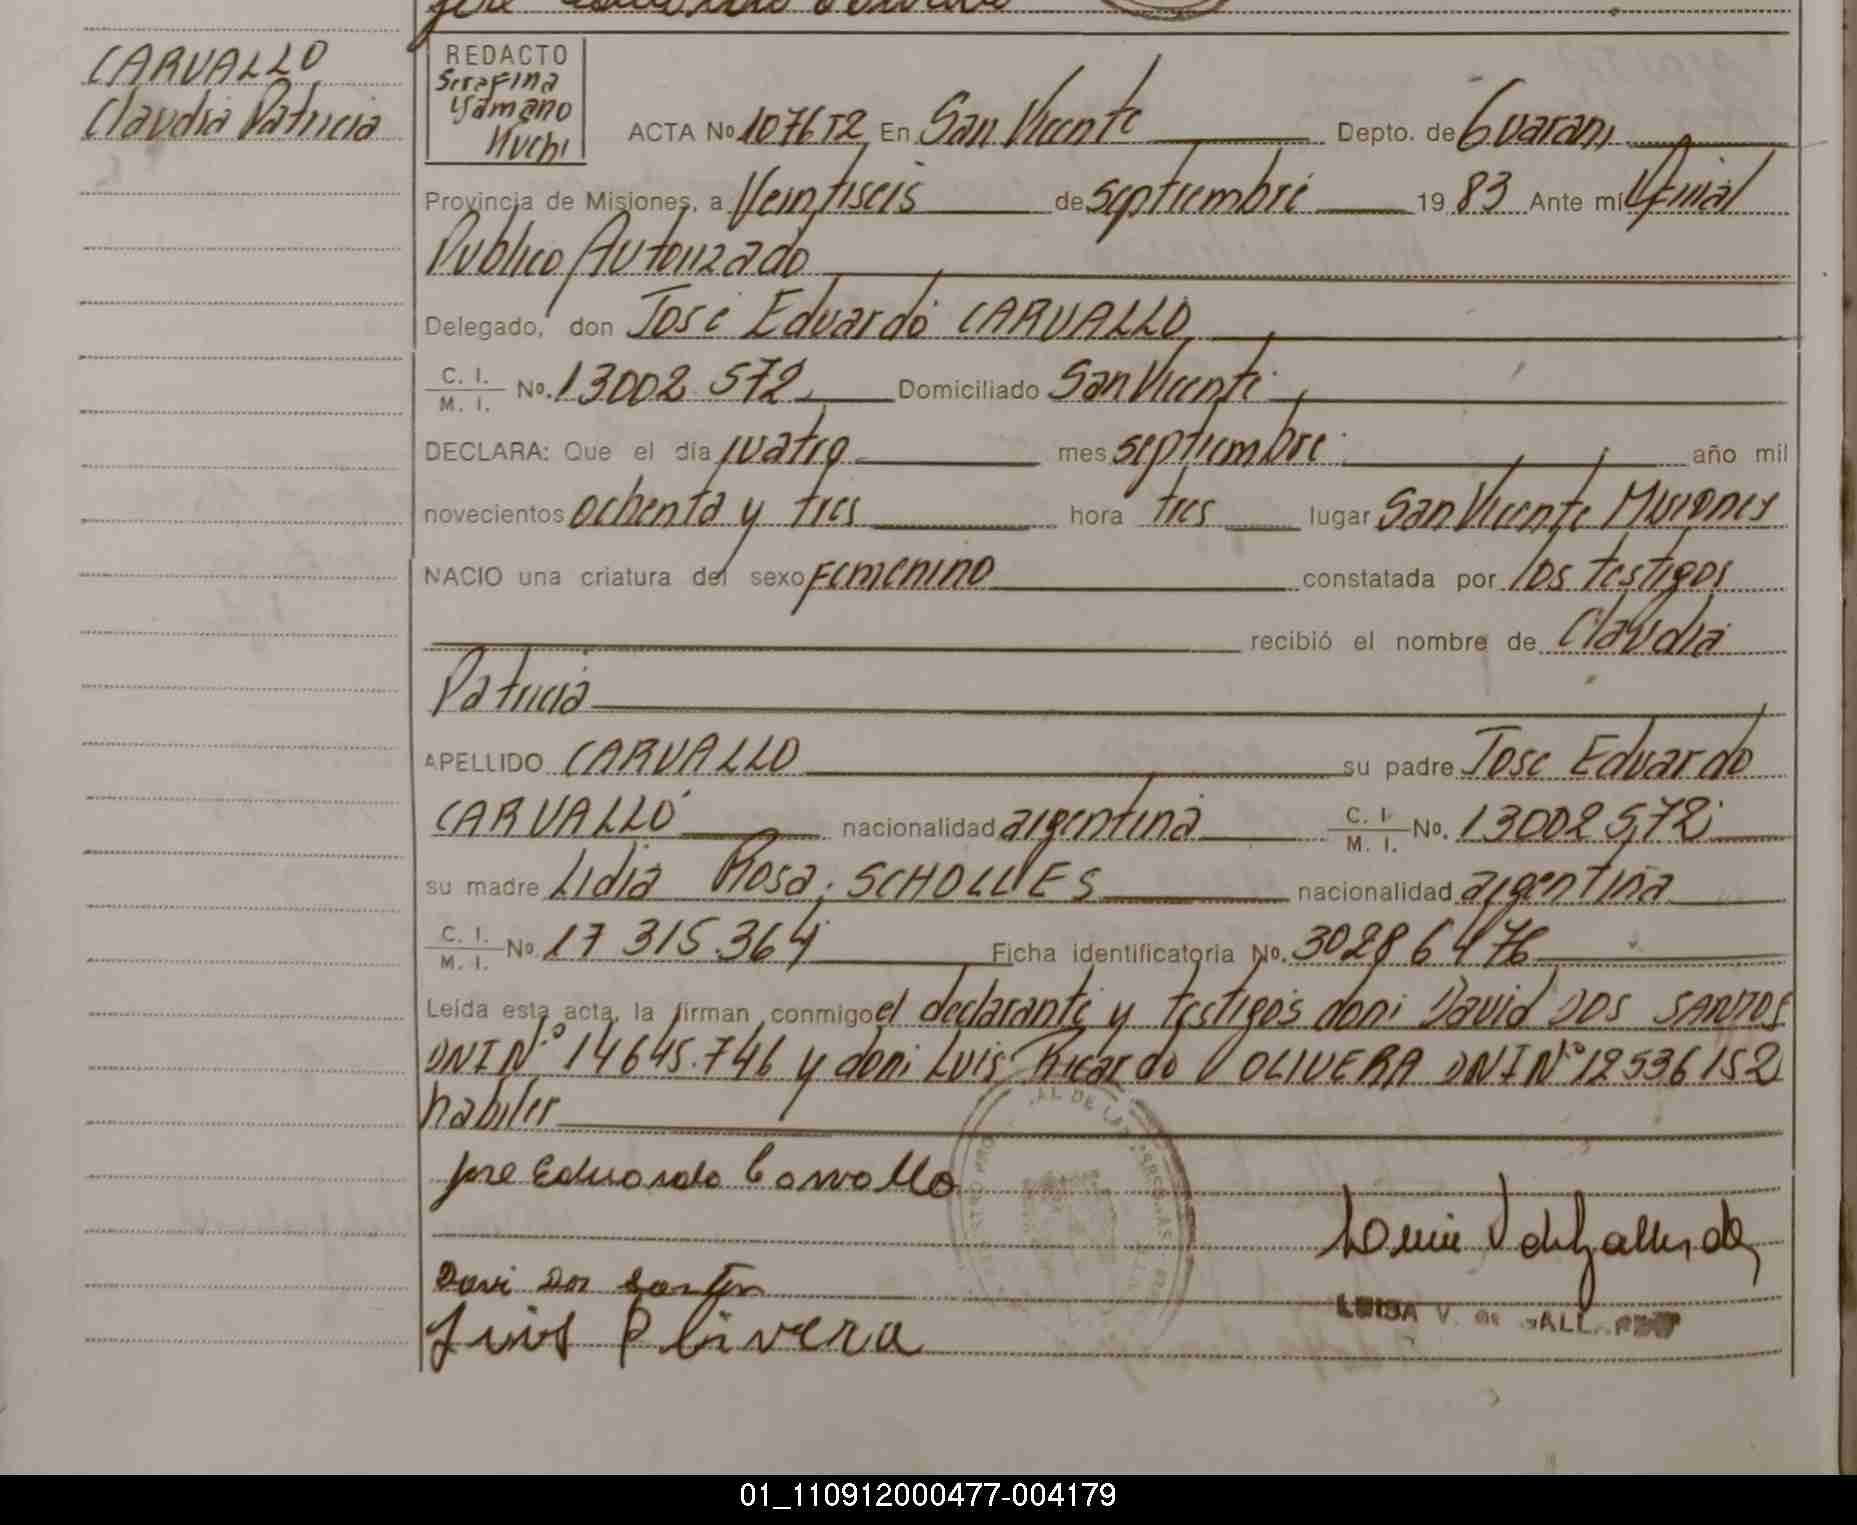 CARVALLO
Claudia Patricia
REDACTO
Serafina
Yamano
Huchi
ACTA No 1076 T2 En San Vicente Depto. de Guarani
Provincia de Misiones, a Veintiseis de septiembre 19 83 Ante mí Oficial
Publico Autorizado
Delegado, don José Eduardo CARVALLO
C. I. / M. I. No. 13002.572 Domiciliado San Vicente
DECLARA: Que el día cuatro mes septiembre año mil
novecientos ochenta y tres hora tres lugar San Vicente Misiones
NACIO una criatura del sexo Femenino constatada por los testigos
recibió el nombre de Claudia
Patricia
APELLIDO CARVALLO su padre Jose Eduardo
CARVALLO nacionalidad argentina C. I. / M. I. No. 13002572
su madre Lidia Rosa SCHOLLES nacionalidad argentina
C. I. / M. I. No. 17 315.364 Ficha identificatoria No. 30286476
Leída esta acta, la firman conmigo el declarante y testigos don: David DOS SANTOS
DNI N° 14645.746 y don: Luis Ricardo OLIVERA DNI N° 12536152
habiles
Jose Eduardo Carvallo
Davi Dos Santos
Luis R Livera
LUISA V. DE GALLARDO
01_110912000477-004179